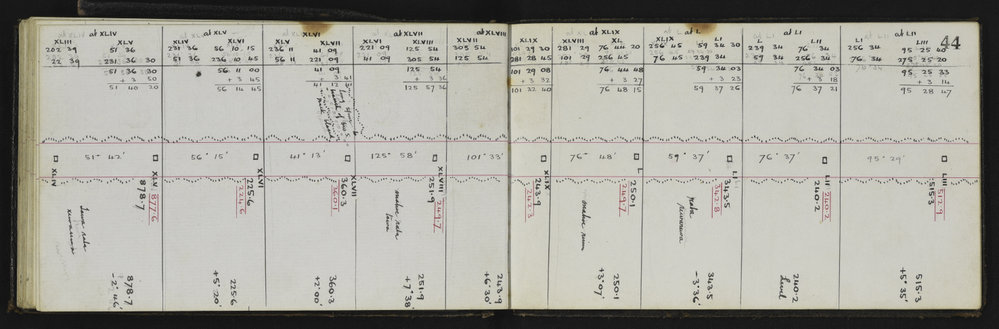 44
at XLIV
XLIII XLV
202 39 51 36
22 39 231 36 30
51 36 30
+ 3 50
51 40 20
at XLV
XLIV XLVI
231 36 56 10 15
51 36 236 10 45
56 11 00
+ 3 45
56 14 45
at XLVI
XLV XLVII
236 11 41 09
56 11 221 09
41 09
at XLVII
XLVI XLVIII
221 09 125 54
41 09 305 54
125 54
+ 3 36
125 57 36
at XLVIII
XLVII XLIX
305 54 101 29 30
125 54 281 28 45
101 29 08
+ 3 32
101 32 40
at XLIX
XLVIII XL
281 29 76 44 20
101 29 256 45
76 44 48
+ 3 27
76 48 15
at L
XLIX LI
256 45 59 34 30
76 45 239 34
59 34 03
+ 3 23
59 37 26
at LI
239 34 76 34
59 34 256 34
76 34 03
+ 3 18
76 37 21
at LII
LI LIII
256 34 95 25 40
76 34 275 25 20
95 25 33
+ 3 14
95 28 47
51° 42'
56° 15'
41° 13'
125° 58'
101° 33'
76° 48'
59° 37'
76° 37'
95° 29'
XLIV
XLV
878·7
877·6
878·7
-2° 46'
XLVI
225·6
224·6
225·6
+5° 20'
XLVII
360·3
360·1
360·3
+2° 00'
XLVIII
251·9
249·7
251·9
+7° 38'
XLIX
243·9
242·3
243·9
+6° 30'
L
250·1
249·7
250·1
+3° 07'
LI
343·5
342·8
343·5
-3° 36'
LII
240·2
240·2
240·2
Level
LIII
515·3
512·9
515·3
+5° 35'